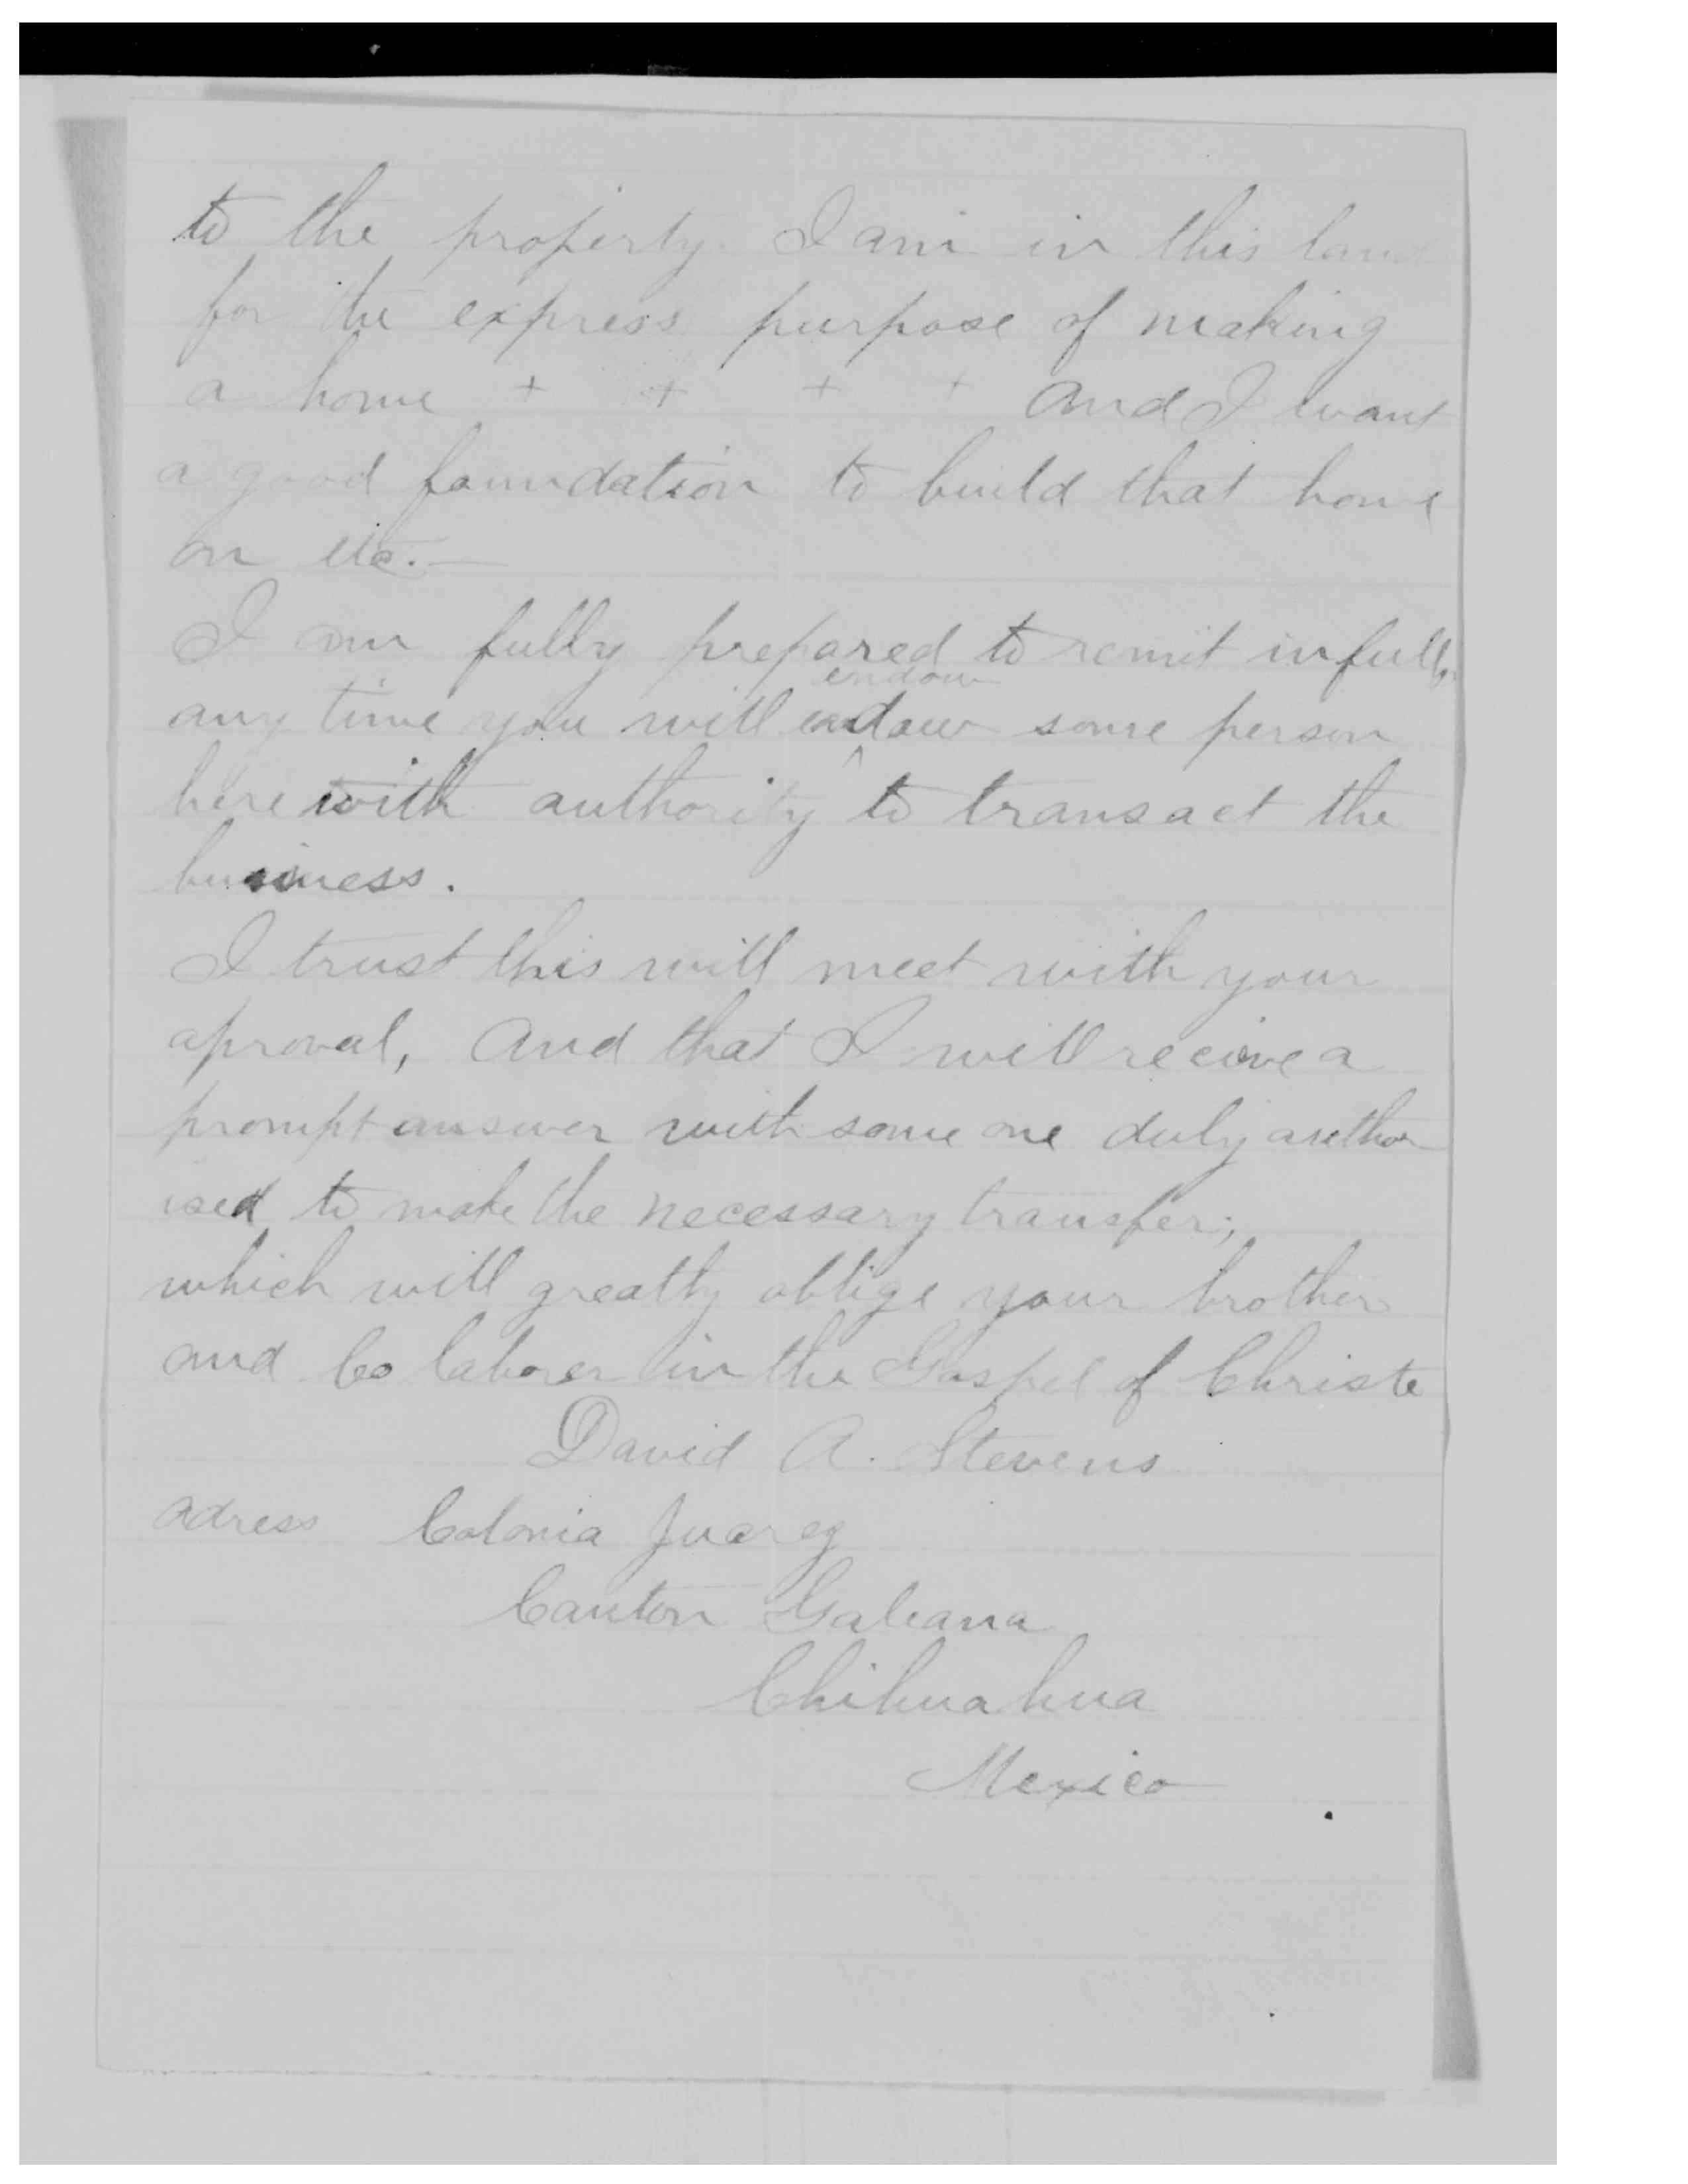 to the property. I am in this land
for the express purpose of making
a home + + + + And I want
a good foundation to build that home
on etc.—
I am fully prepared to remit in full,
endow
any time you will endow some person
^
here with authority to transact the
business.
I trust this will meet with your
aproval, And that I will recieve a
prompt answer with some one duly author
ised to make the necessary transfer;
which will greatly oblige your brother
and Co laborer in the Gospel of Christe
David A. Stevens
adress Colonia Juarez
Canton Galeana
Chihuahua
Mexico